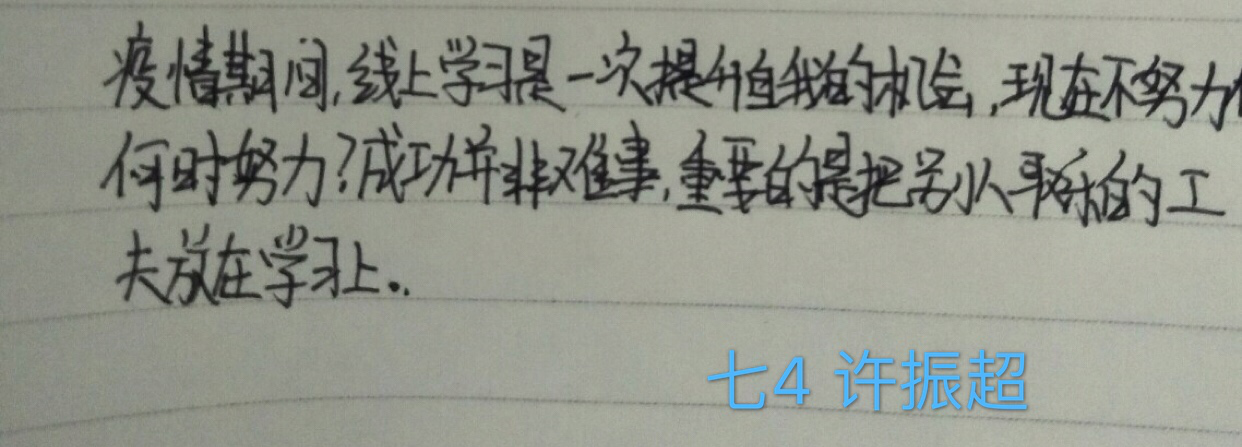 疫情期间,线上学习是一次提升自我的机会,现在不努力
何时努力?成功并非难事,重要的是把别人喝的工
夫放在学习上..
七4 许振超